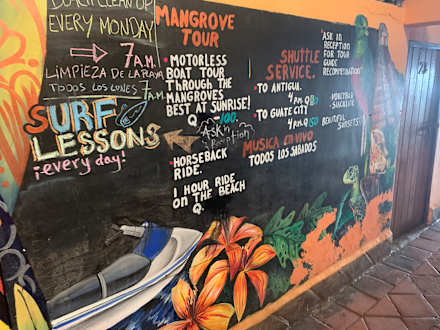 BEACH CLEAN UP
EVERY MONDAY
7 A.M.
LIMPIEZA DE LA PLAYA
TODOS LOS LUNES 7 A.M.
SURF
LESSONS
¡every day!
Ask in
Reception
MANGROVE
TOUR
• MOTORLESS
BOAT TOUR
THROUGH THE
MANGROVES
BEST AT SUNRISE!
Q. 100.
• HORSEBACK
RIDE.
1 HOUR RIDE
ON THE BEACH
Q.
SHUTTLE
SERVICE.
• TO ANTIGUA.
4 P.M.
• TO GUATE CITY
4 P.M.
MUSICA EN VIVO
TODOS LOS SABADOS
"ASK IN
RECEPTION
FOR TOUR
GUIDE
RECOMMENDATION"
SUNSETS!